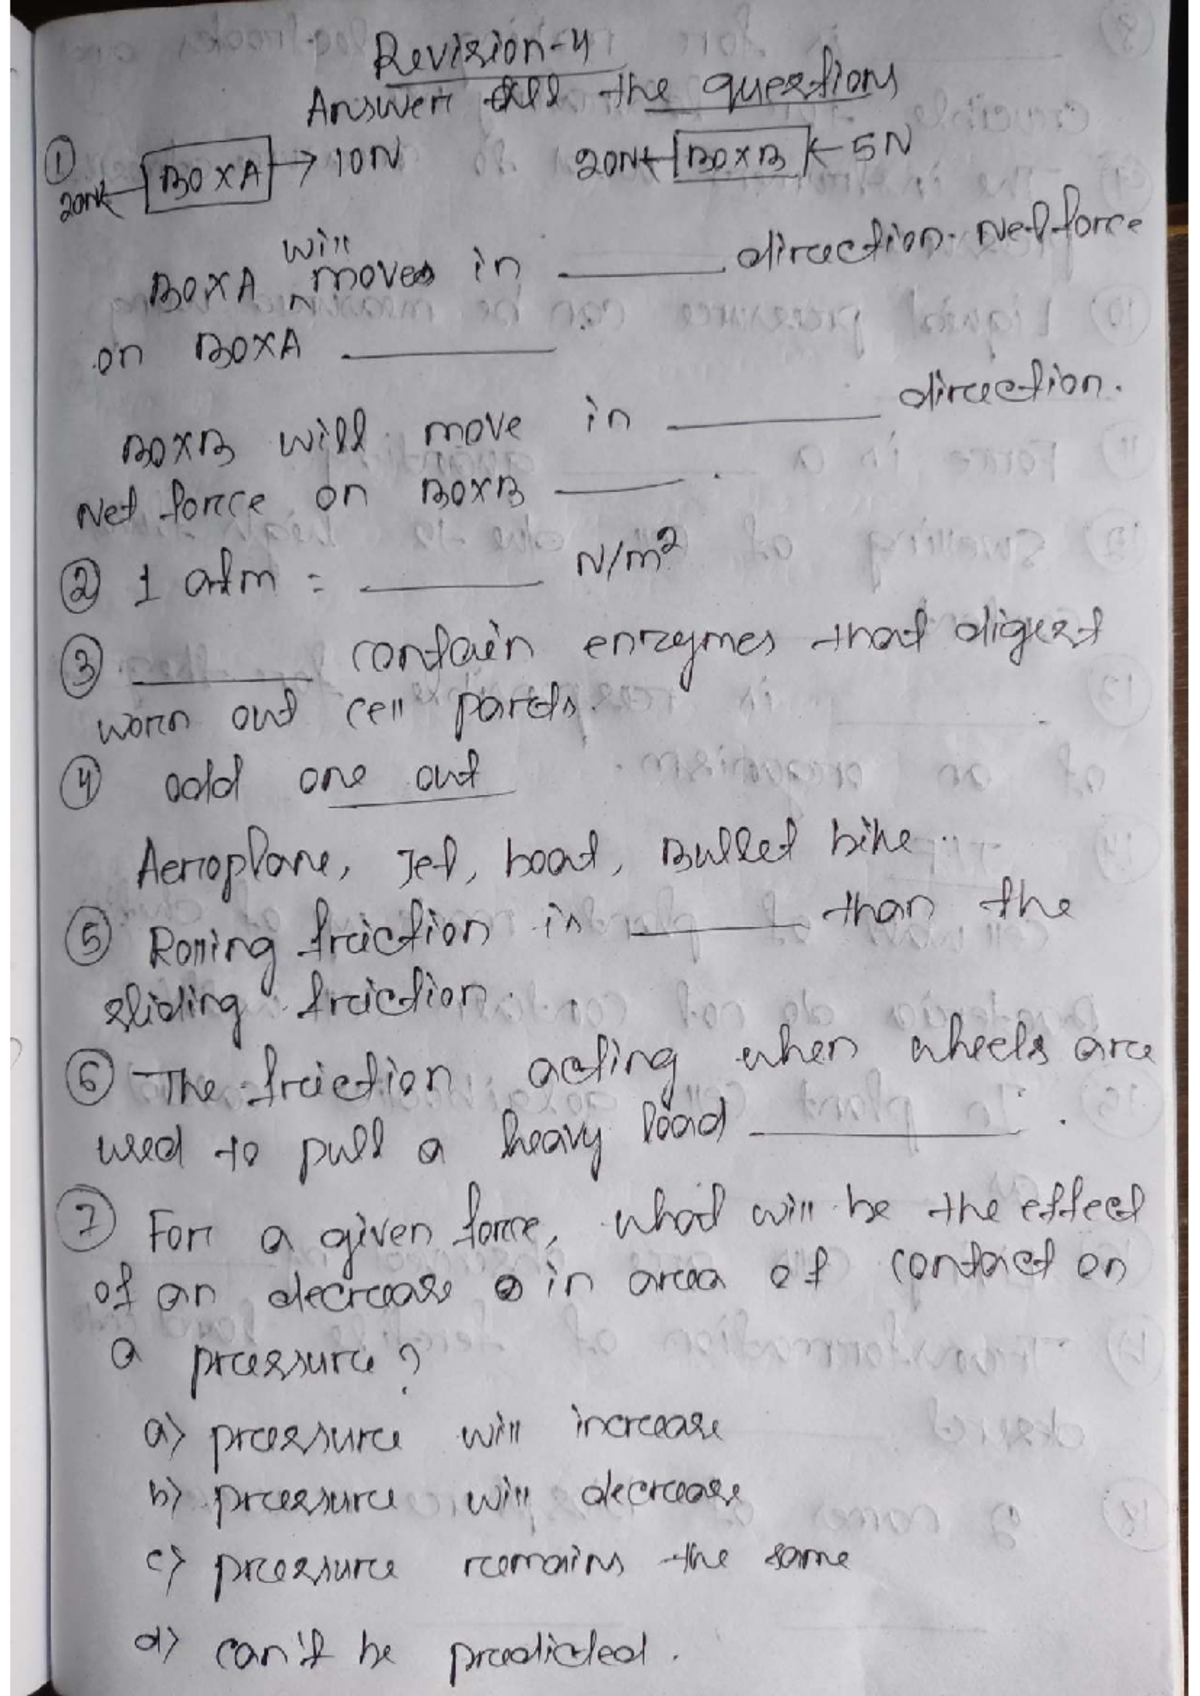 Revision-4
Answer all the questions
① 20N← BOXA → 10N 20N← BOXB ← 5N
BOXA will moves in ______ direction. Net force
on BOXA ______
BOXB will move in ______ direction.
Net force on BOXB ______.
② 1 atm = ______ N/m²
③ ______ contain enzymes that digest
worn out cell parts.
④ odd one out
Aeroplane, Jet, boat, Bullet bike..
⑤ Rolling friction is ______ than the
sliding friction.
⑥ The friction acting when wheels are
used to pull a heavy load ______.
⑦ For a given force, what will be the effect
of an decrease in area of contact on
a pressure?
a) pressure will increase
b) pressure will decrease
c) pressure remains the same
d) can't be predicted.